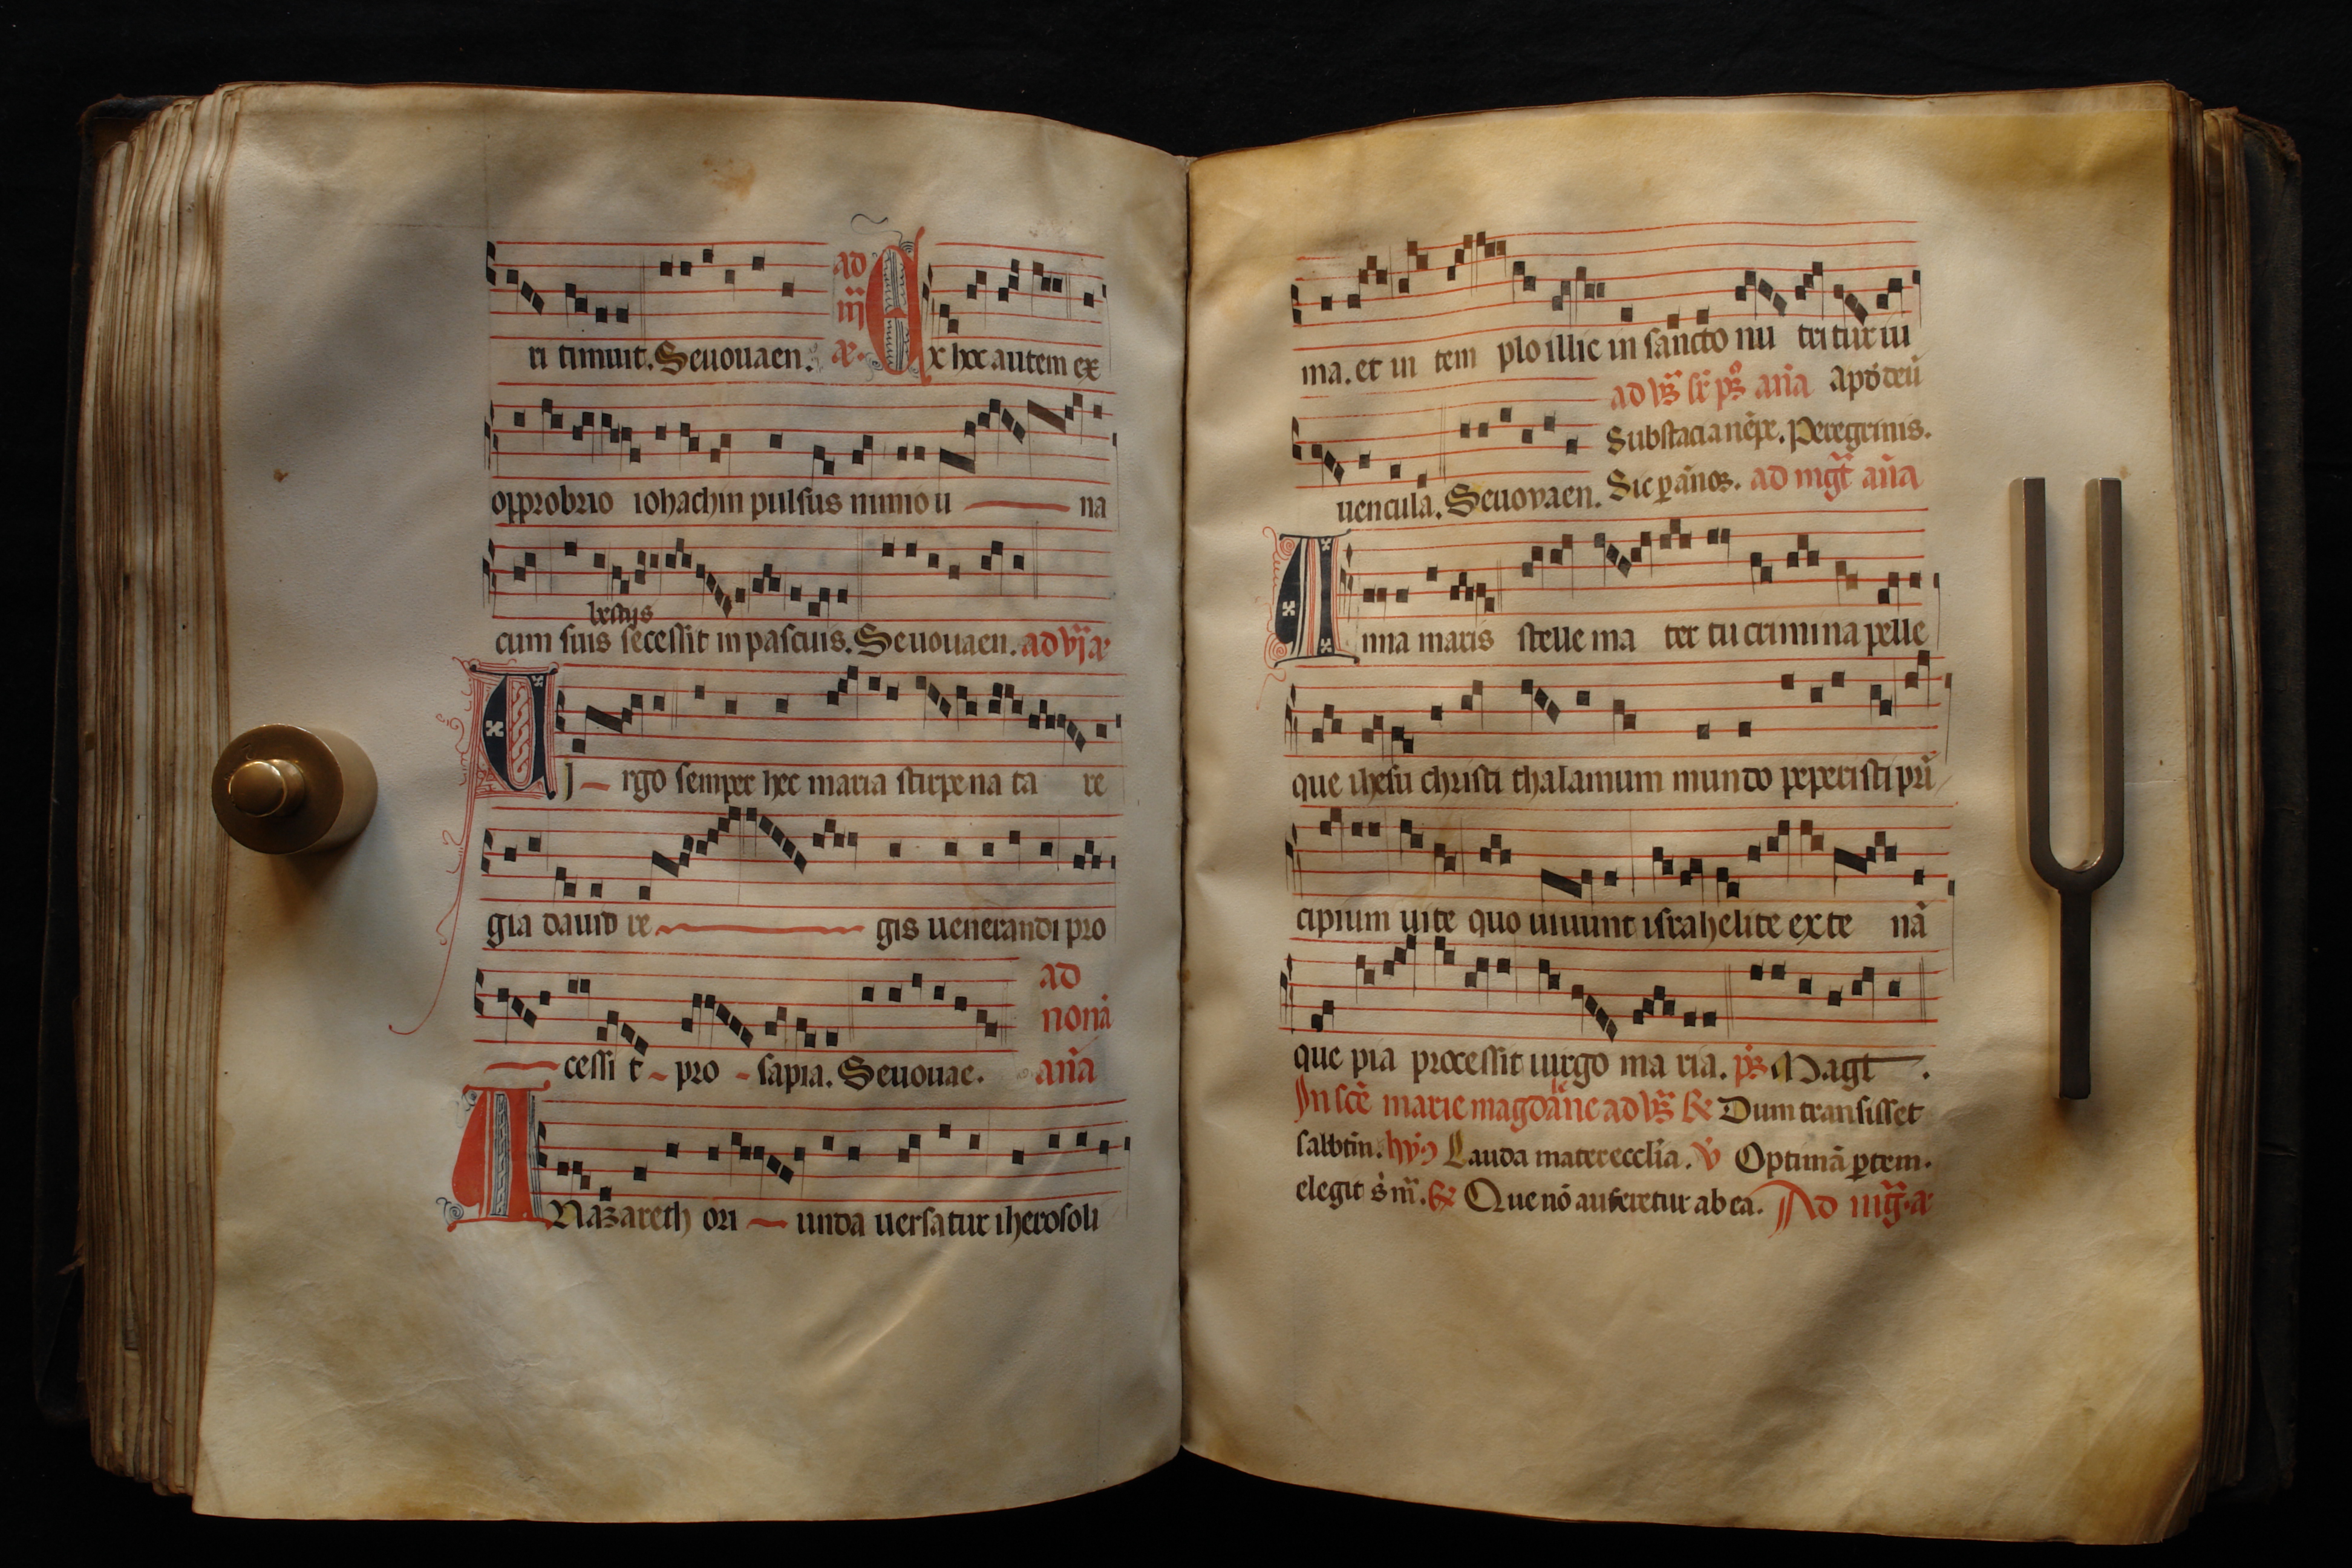 ri timuit. Seuouaen. ad iij ā. Ex hoc autem ex
opprobrio iohachin pulsus nimio u na
bestijs
cum suis secessit in pascuis. Seuouaen. ad vj ā
U J rgo semper hec maria stirpe nata re
gia dauid re gis uenerandi pro
ad nonā añā
cessit pro sapia. Seuouae.
A Nazareth ori unda uersatur iherosoli
ma. et in tem plo illic in sancto nu tritur iu
ad vs̃ sr̃ ps̃ añā apd̕ deū
Substācia nēpe. Peregrinis.
uencula. Seuovaen. Sic p̱ ānos. ad mg̃t añā
Anna maris stelle ma ter tu crimina pelle
que ihesu christi thalamum mundo peperisti prī
cipium uite quo uiuunt israhelite ex te nā
que pia processit uirgo ma ria. ps̃ Magt.
In scē marie magdalene ad vs̃ R̃ Dum transisset
sabbtm̃. hyꝰ Lauda mater ecclīa. v̕ Optimā p̱tem.
elegit s̕ m̃. R̃ Que nō auferetur ab ea. Ad mg̃. ā